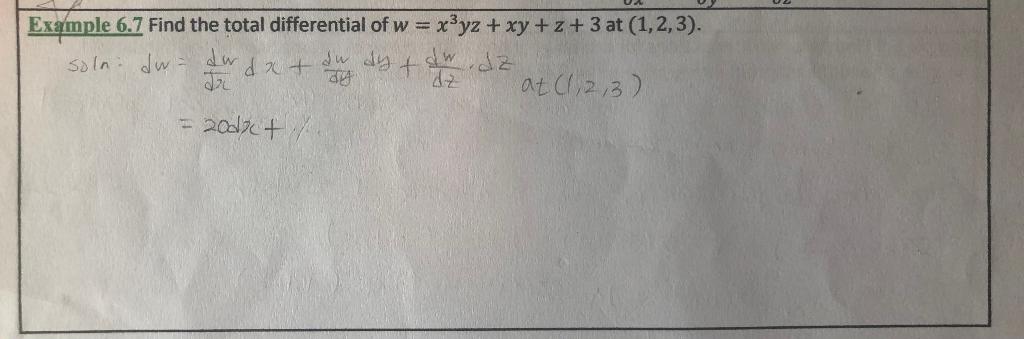 Example 6.7 Find the total differential of w = x³yz + xy + z + 3 at (1, 2, 3).
soln: dw = dw/dx dx + dw/dy dy + dw/dz . dz at (1,2,3)
= 20dx +